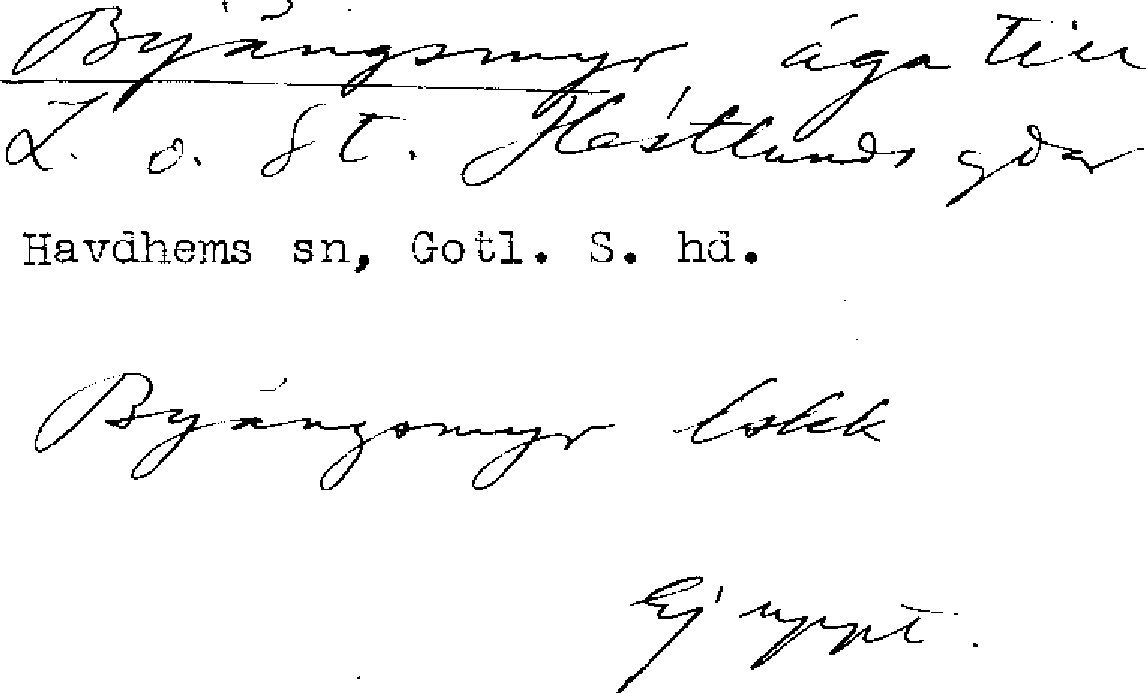 Byängsmyr äga till
L. o. St. Hästlunds gdar
Havdhems sn, Gotl. S. hd.
Byängsmyr Eskk
Ej uppt.